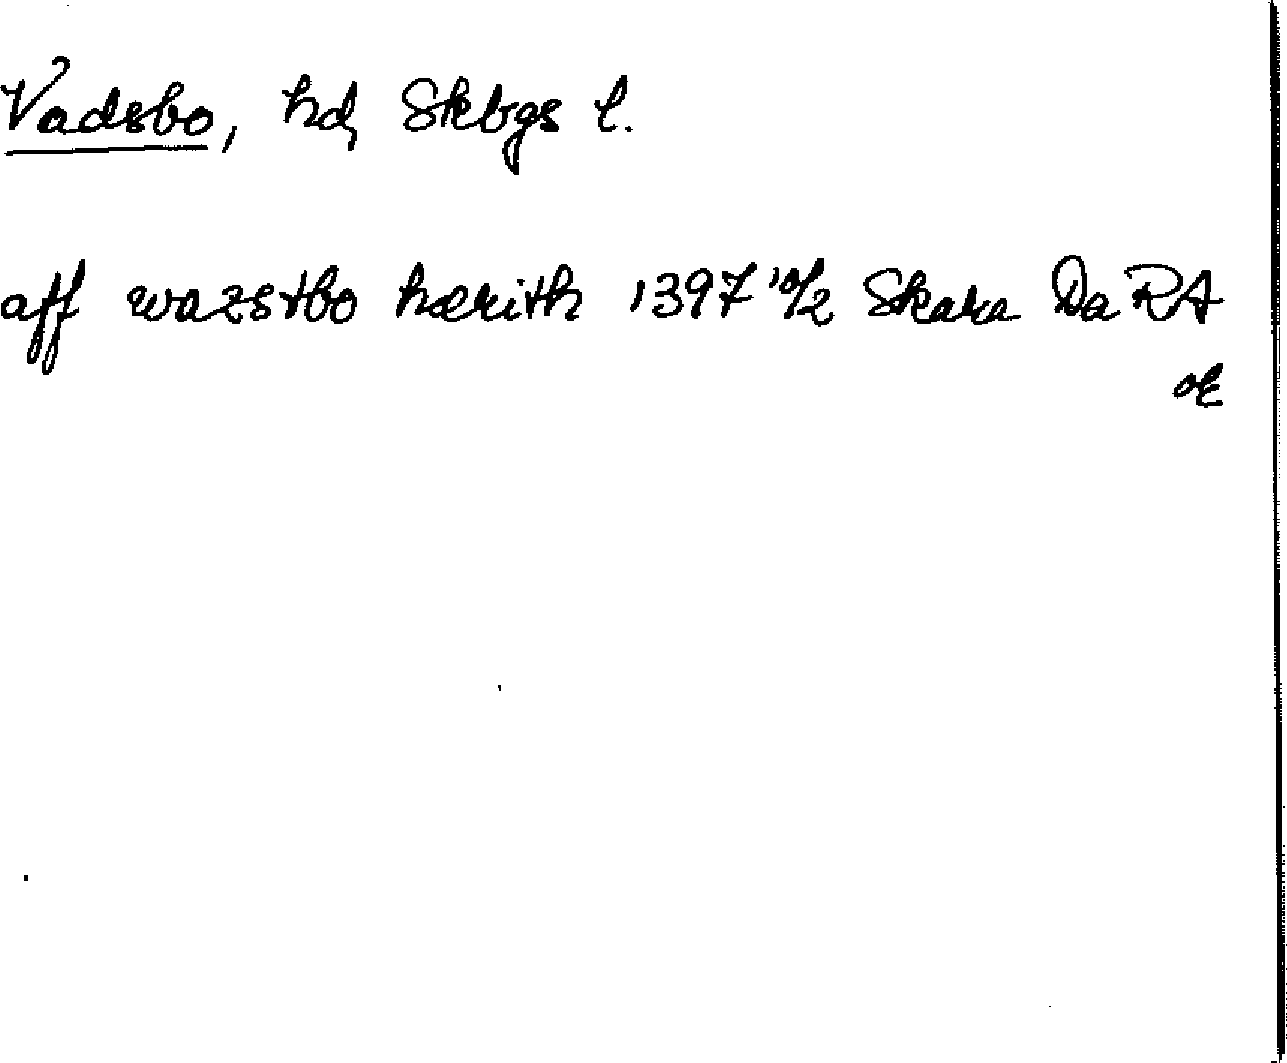 Vadsbo, hd, Skbgs l.
aff wazstbo hærith 1397 10/2 Skara Da RA
or